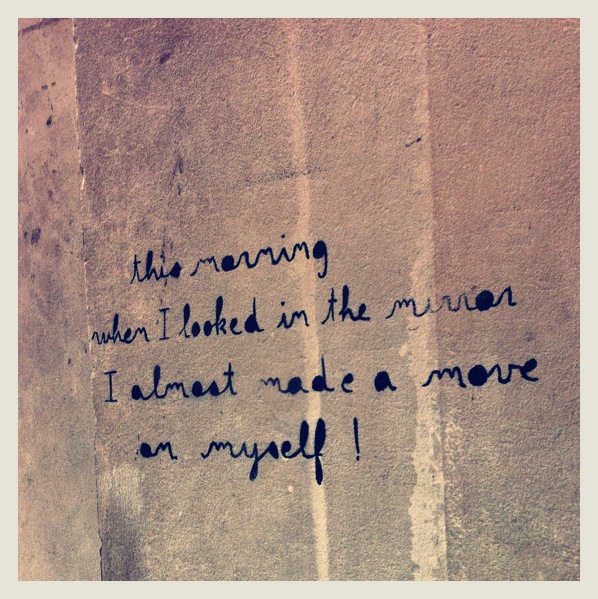 this morning
when I looked in the mirror
I almost made a move
on myself !